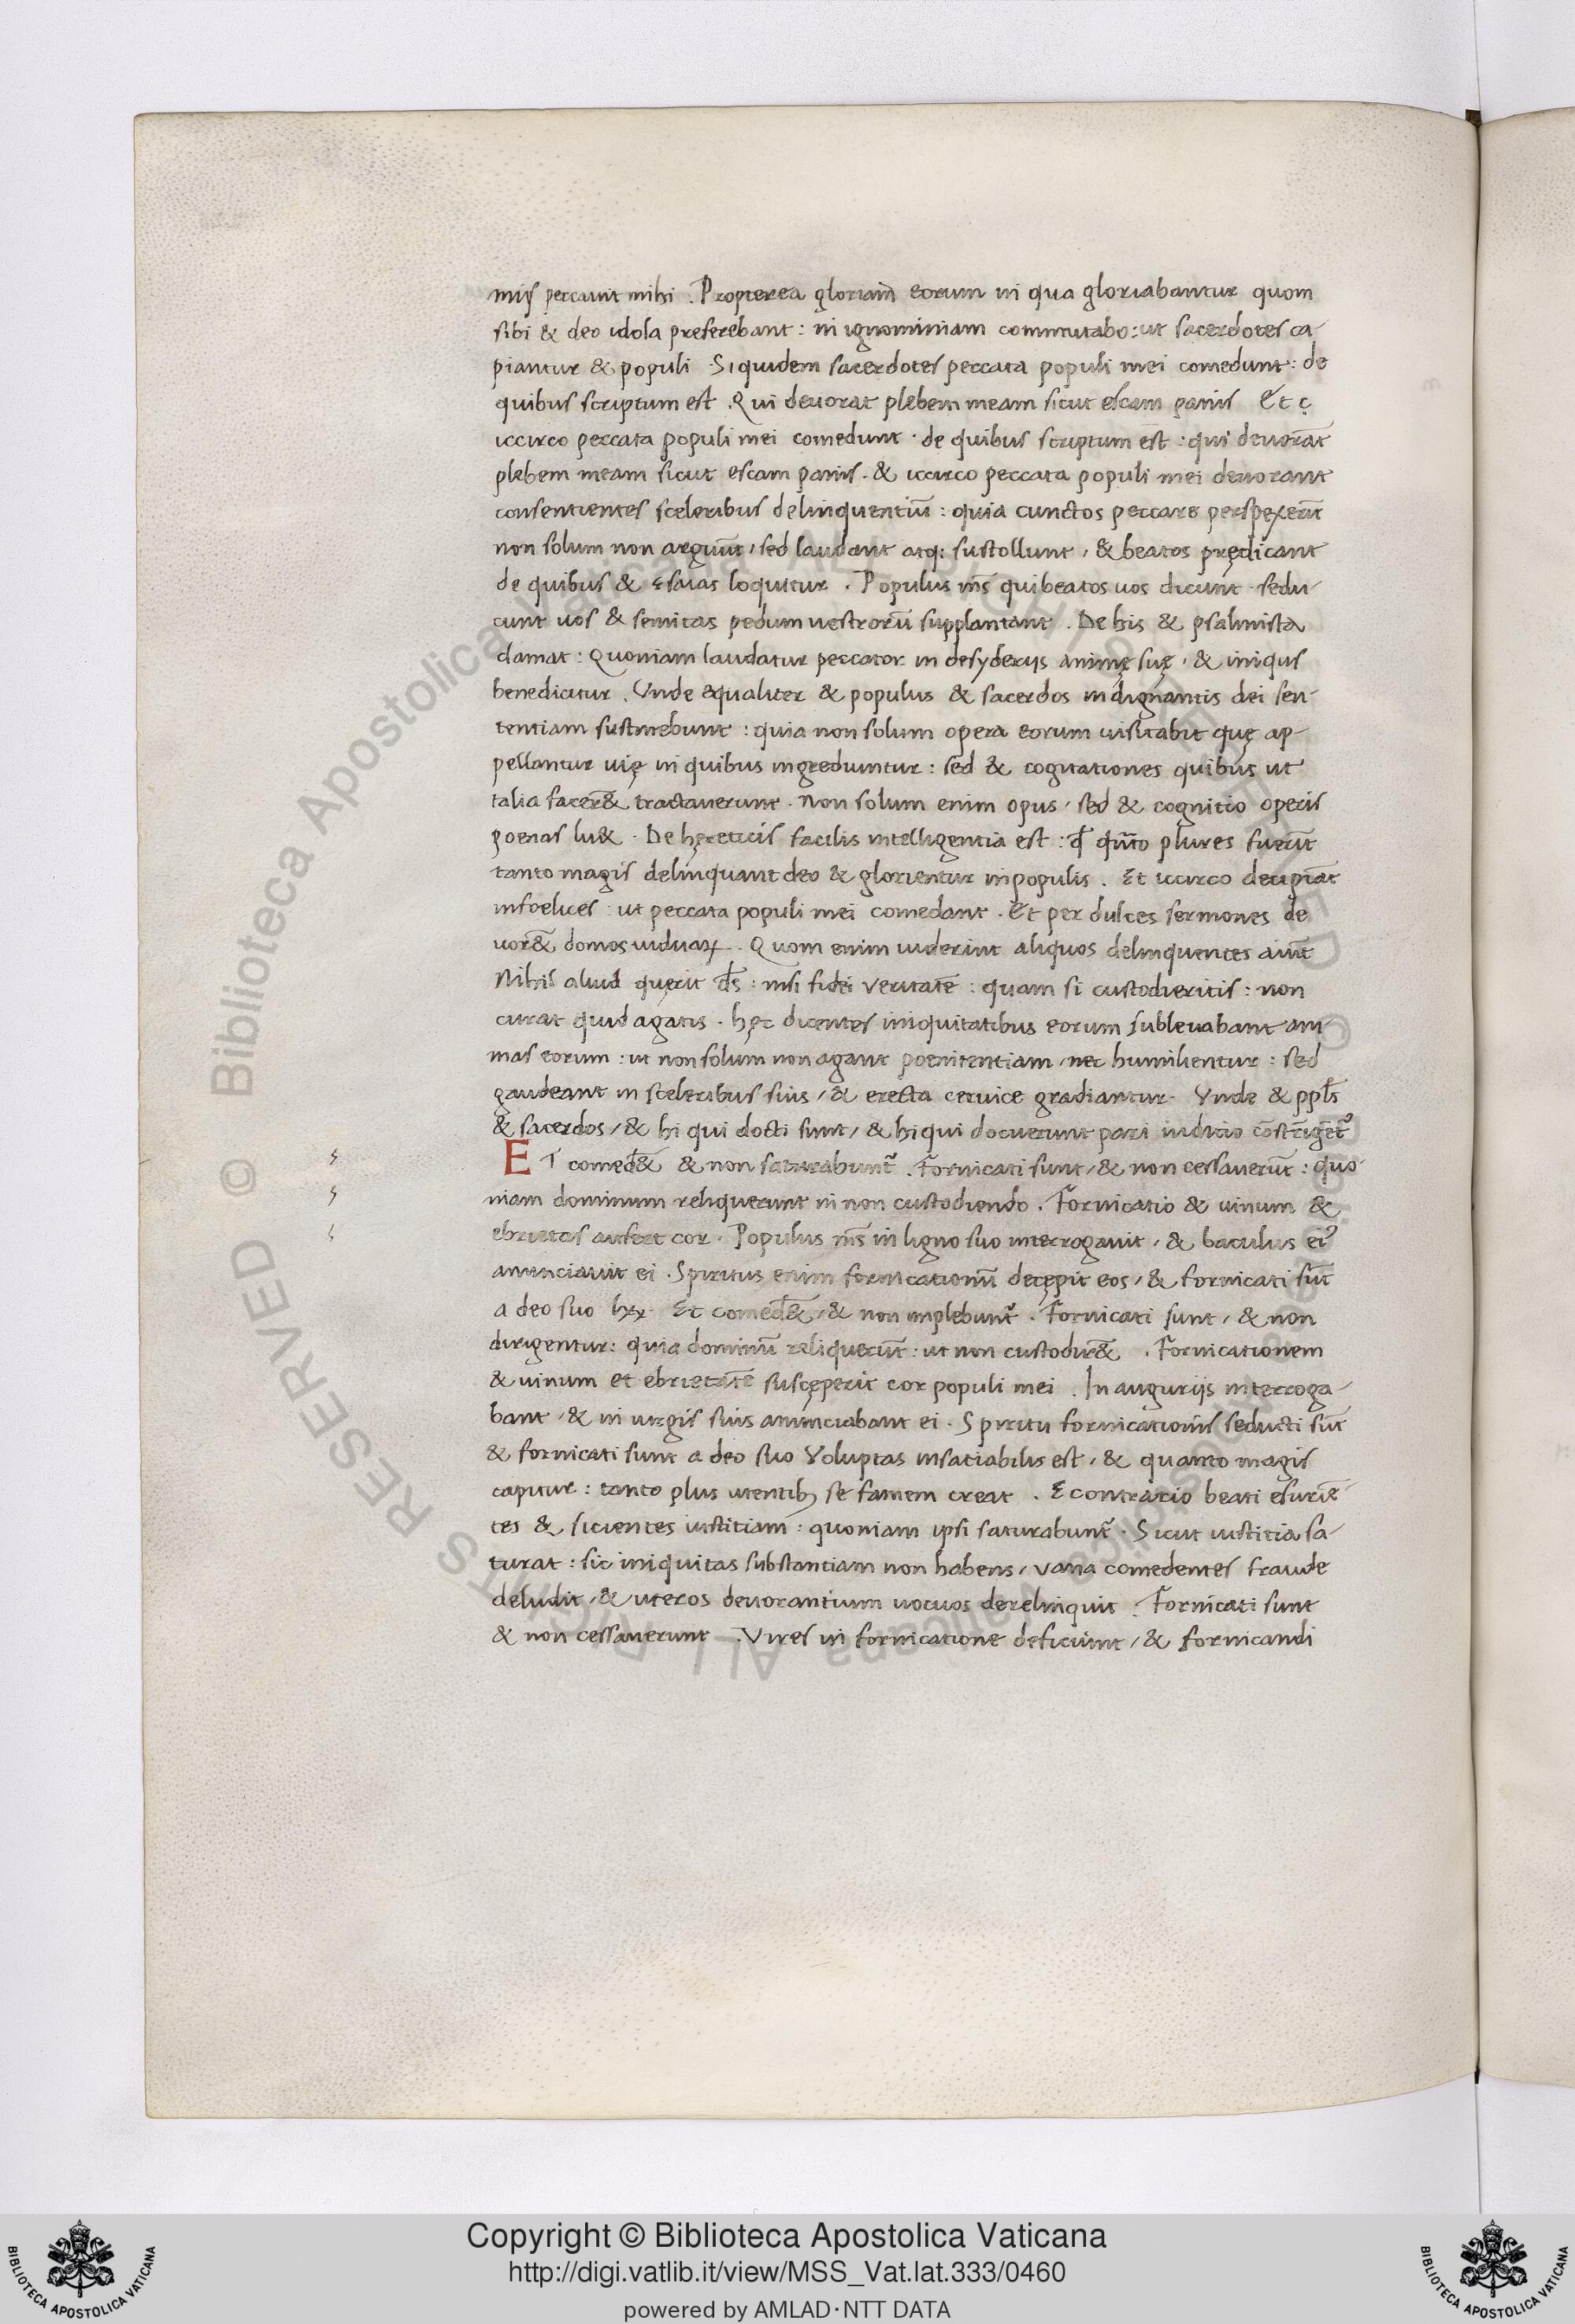 mijs peccauit mihi . Propterea gloriam̄ eorum in qua gloriabantur quom
sibi & deo idola preferebant : in ignominiam commutabo : ut sacerdotes ca-
piantur & populi . Siquidem sacerdotes peccata populi mei comedunt : de
quibus scriptum est . Qui deuorat plebem meam sicut escam panis Et ę
iccirco peccata populi mei comedunt . de quibus scriptum est : qui deuorāt
plebem meam sicut escam panis . & iccirco peccata populi mei deuorant
consentientes sceleribus delinquentiū : quia cunctos peccare perspexerīt
non solum non arguūt / sed laudant atq; sustollunt / & beatos prędicant
de quibus & esaias loquitur . Populus m̄s qui beatos uos dicunt . sedu-
cunt uos & semitas pedum uestrorū supplantant . De his & psalmista
clamat : Quoniam laudatur peccator in desyderijs animę suę / & iniqus
benedicitur . Vnde equaliter & populus & sacerdos indignantis dei sen-
tentiam sustinebunt : quia non solum opera eorum uisitabit quę ap-
pellantur uię in quibus ingrediuntur : sed & cogitationes quibus ut
talia facer&̄ tractauerunt . Non solum enim opus / sed & cognitio operis
poenas lu& . De hęreticis facilis intelligentia est : ꝙ qūto plures fuerīt
tanto magis delinquant deo & glorientur in populis . Et iccirco decipiāt
infoelices : ut peccata populi mei comedant . Et per dulces sermones de
uor&̄ domos uiduaꝝ . Quom enim uiderint aliquos delinquentes aiūt
Nihil aliud quęrit d̄s : nisi fidei veritatē : quam si custodieritis : non
curat quid agatis . hęc dicentes iniquitatibus eorum subleuabant ani
mas eorum : ut non solum non agant poenitentiam / nec humilientur : sed
gaudeant in sceleribus suis / & erecta ceruice gradiantur . Vnde & ppl̄s
& sacerdos / & hi qui docti sunt / & hi qui docuerunt pari iuditio cōstrīgēt᷑
ET comed&̄ & non saturabunt᷑ . Fornicati sunt / & non cessauerūt : quo-
niam dominum reliquerunt in non custodiendo . Fornicatio & uinum &
ebrietas aufert cor . Populus m̄s in ligno suo interrogauit / & baculus ei᷒
annunciauit ei . Spiritus enim fornicationū decępit eos / & fornicati sūt
a deo suo lxx . Et comed&̄ / & non implebunt᷑ . Fornicati sunt / & non
dirigentur : quia dominū reliquerūt : ut non custodir&̄ . Fornicationem
& uinum et ebrietatē suscęperit cor populi mei . In augurijs interroga-
bant / & in uirgis suis annunciabant ei . Spiritu fornicationis seducti sūt
& fornicati sunt a deo suo Voluptas insatiabilis est / & quanto magis
capitur : tanto plus utentibꝫ se famem creat . E contrario beati esuriē-
tes & sicientes iustitiam : quoniam ipsi saturabunt᷑ . Sicut iustitia sa-
turat : sic iniquitas substantiam non habens / vana comedentes fraude
deludit / & uteros deuorantium uocuos derelinquit . Fornicati sunt
& non cessauerunt . Vires in fornicatione deficiunt / & fornicandi
Copyright © Biblioteca Apostolica Vaticana
http://digi.vatlib.it/view/MSS_Vat.lat.333/0460
powered by AMLAD·NTT DATA